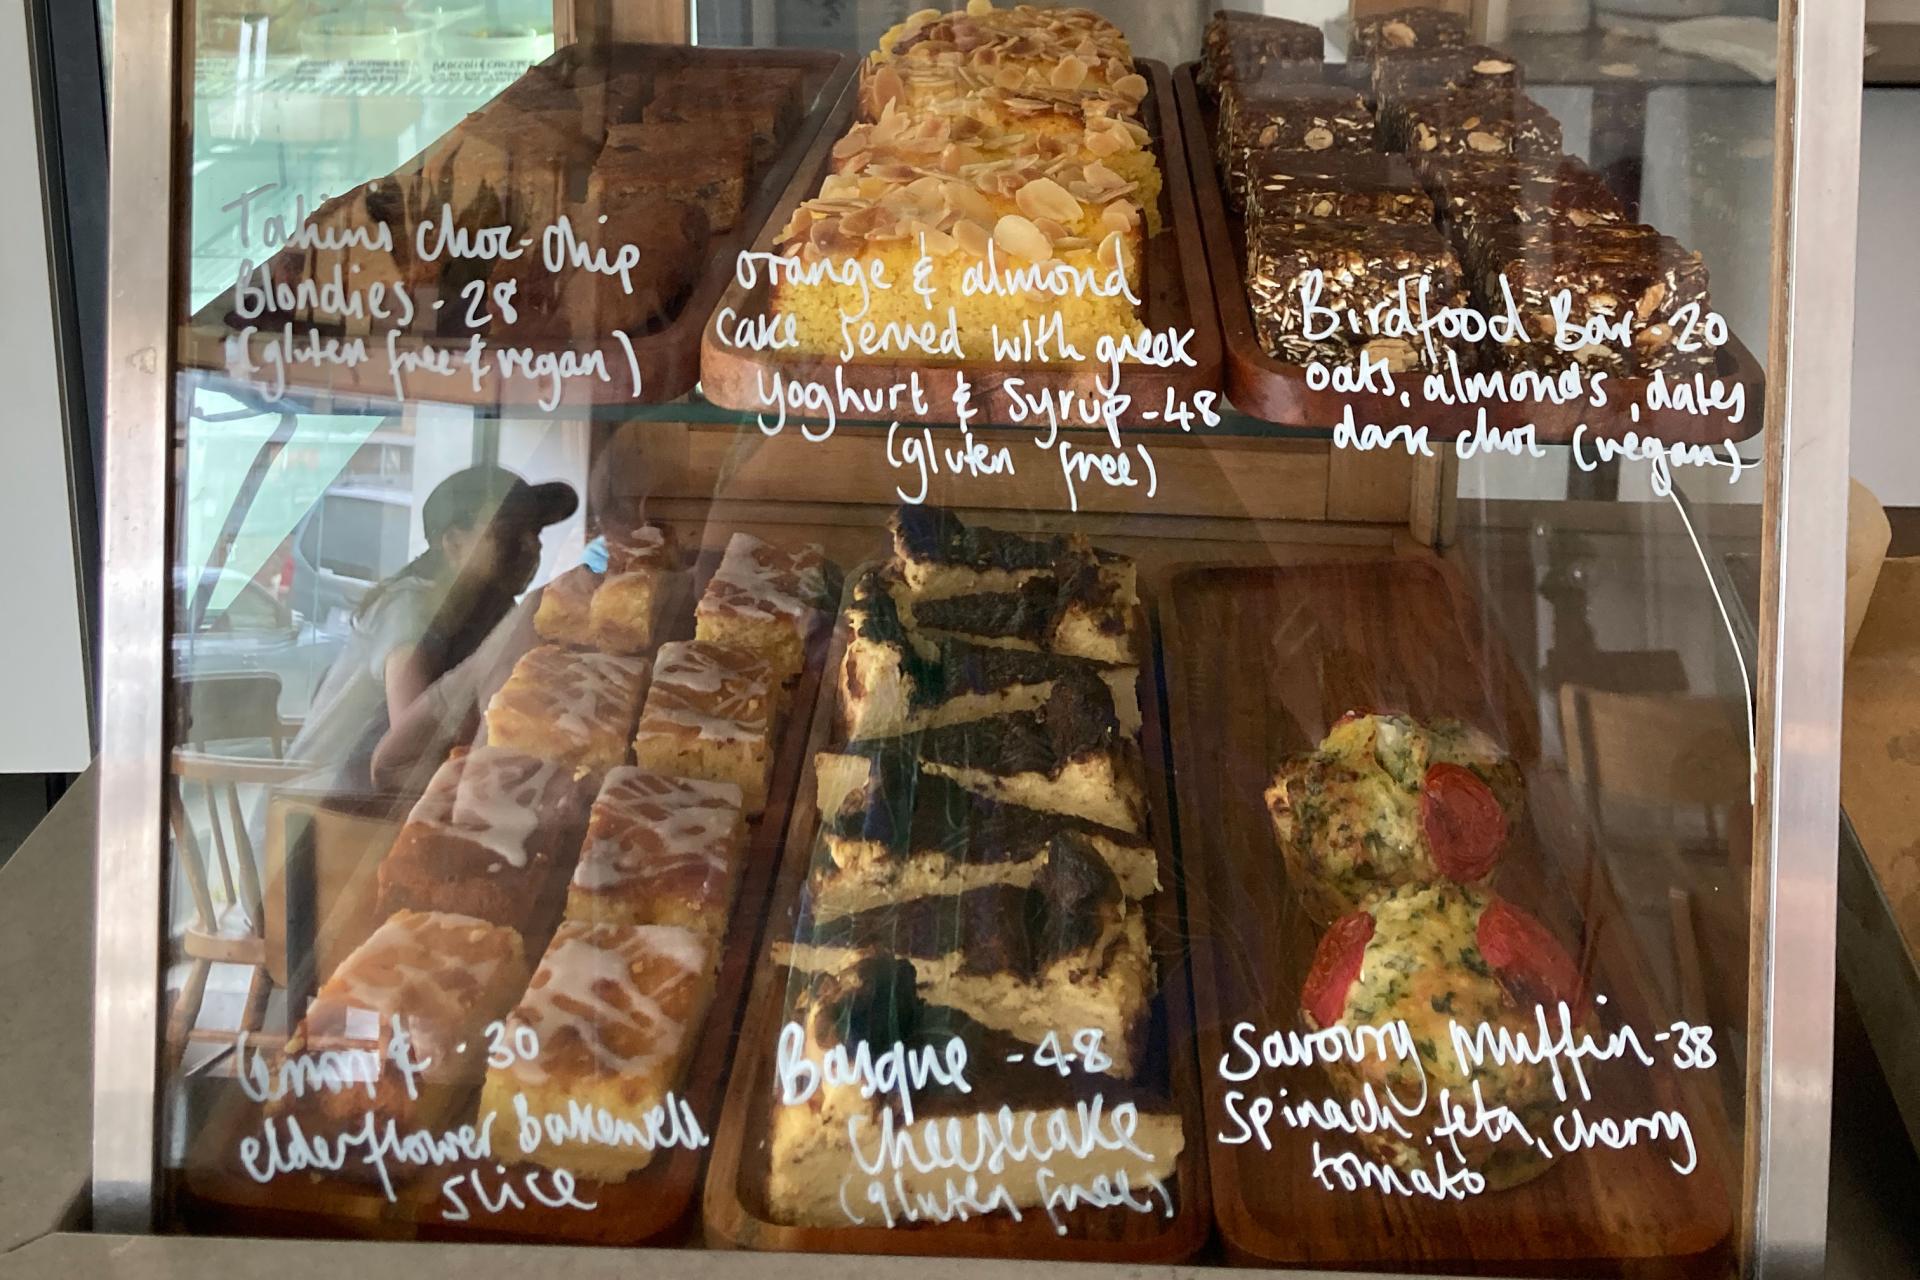 Tahini choc-chip
Blondies - 28
(gluten free & vegan)
orange & almond
cake served with greek
yoghurt & syrup - 48
(gluten free)
Birdfood Bar - 20
oats, almonds, dates
dark choc (vegan)
Lemon & - 30
elderflower bakewell
slice
Basque - 48
cheesecake
(gluten free)
Savoury Muffin - 38
Spinach, feta, cherry
tomato